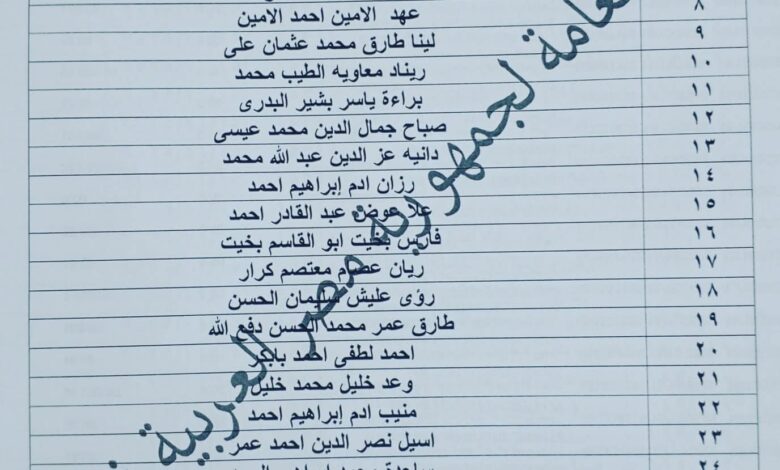 ٨ عهد الامين احمد الامين
٩ لينا طارق محمد عثمان على
١٠ ريناد معاويه الطيب محمد
١١ براءة ياسر بشير البدرى
١٢ صباح جمال الدين محمد عيسى
١٣ دانيه عز الدين عبد الله محمد
١٤ رزان ادم إبراهيم احمد
١٥ علا عوض عبد القادر احمد
١٦ فارس بخيت ابو القاسم بخيت
١٧ ريان عصام معتصم كرار
١٨ رؤى عليش سليمان الحسن
١٩ طارق عمر محمد الحسن دفع الله
٢٠ احمد لطفى احمد بابكر
٢١ وعد خليل محمد خليل
٢٢ منيب ادم إبراهيم احمد
٢٣ اسيل نصر الدين احمد عمر
٢٤
لجمهورية مصر العربية